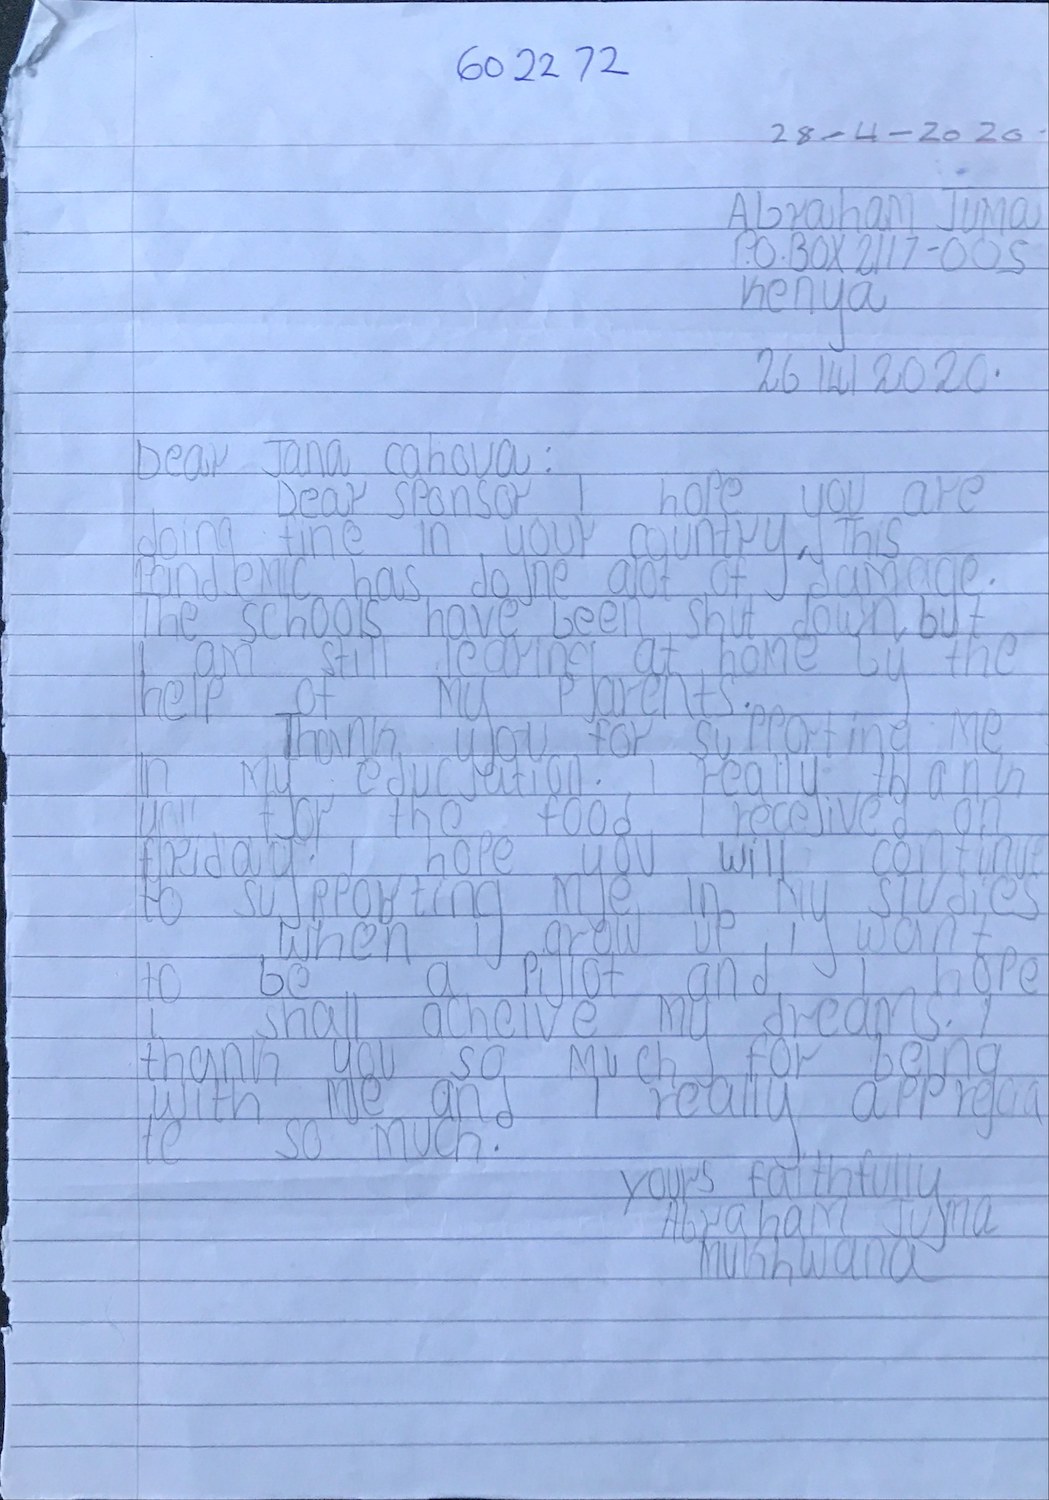 602272
28-4-2020.
Abraham Juma
P.O.BOX 2117-005
Kenya
26/4/2020.
Dear Jana cahova:
Dear sponsor I hope you are
doing fine in your country. This
Pandemic has done alot of damage.
The schools have been shut down but
I am still learing at home by the
help of my Parents.
Thank you for supporting me
in my education. I really thank
you for the food I received on
freiday. I hope you will continue
to supporting me in my studies
When I grow up I want
to be a Pilot and I hope
I shall acheive my dreams. I
thank you so much for being
with me and I really apprecia
te so much.
yours faithfully
Abraham Juma
Mukhwana